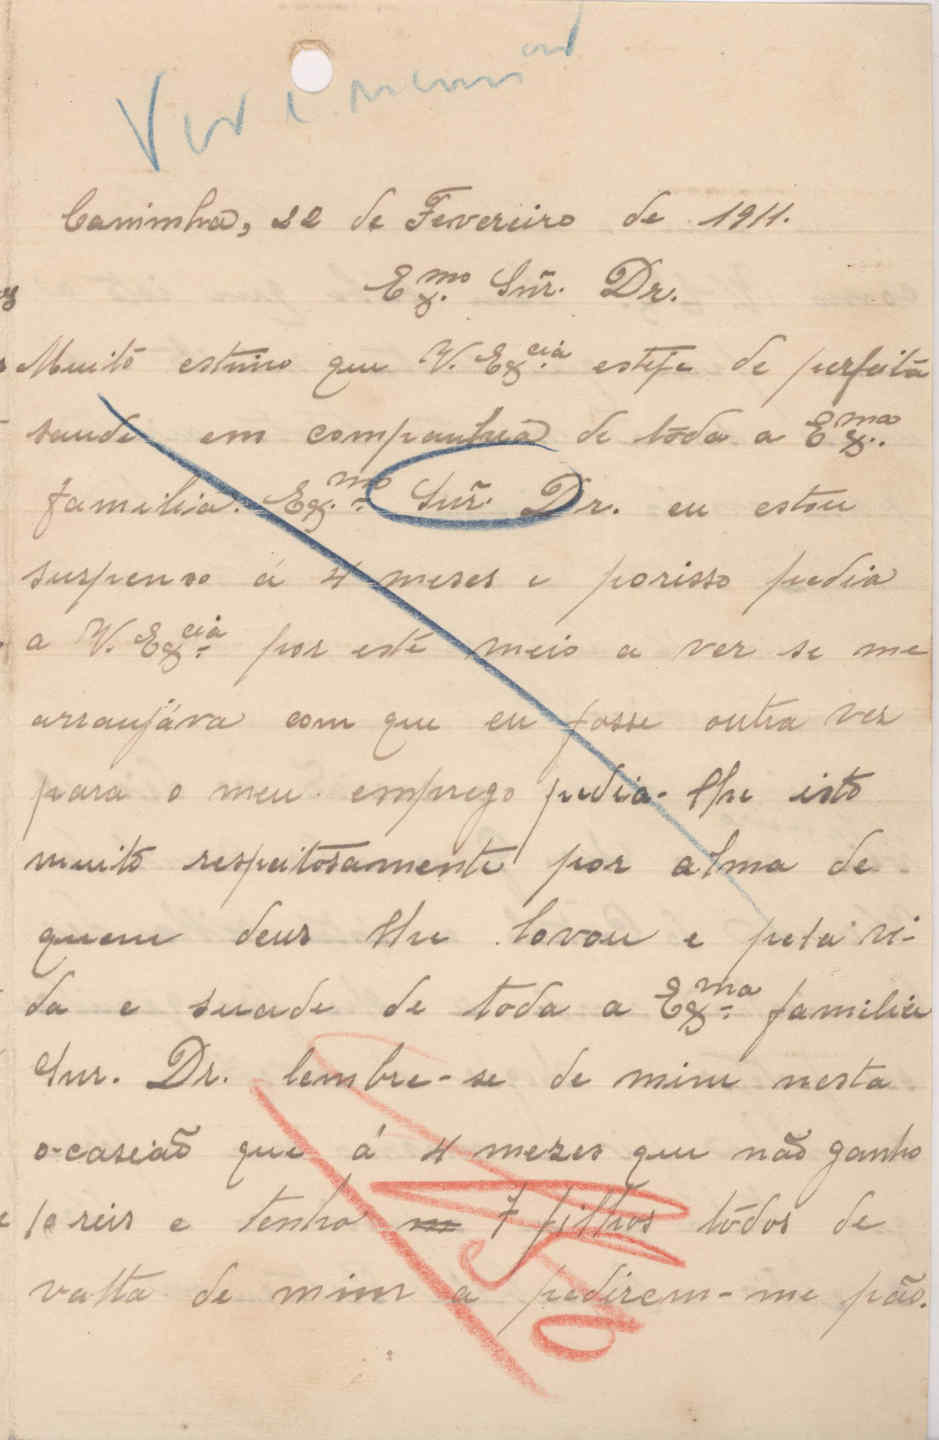 Caminha, 22 de Fevereiro de 1911.
Ex.mo Snr. Dr.
Muito estimo que V. Ex.cia esteje de perfeita
saude em companhia de tôda a Ex.ma
familia. Ex.mo Snr. Dr. eu estou
suspenso á 4 meses e porisso pedia
a V. Ex.cia por este meio a ver se me
arranjáva com que eu fosse outra vez
para o meu emprego pedia-lhe isto
muito respeitosamente por alma de
quem deus lhe lovou e pela vi-
da e suade de toda a Ex.ma familia
Snr. Dr. lembre-se de mim nesta
o-caseião que á 4 mezes que não ganho
10 reis e tenho 7 filhos tôdos de
valta de mim a pedirem-me pão.